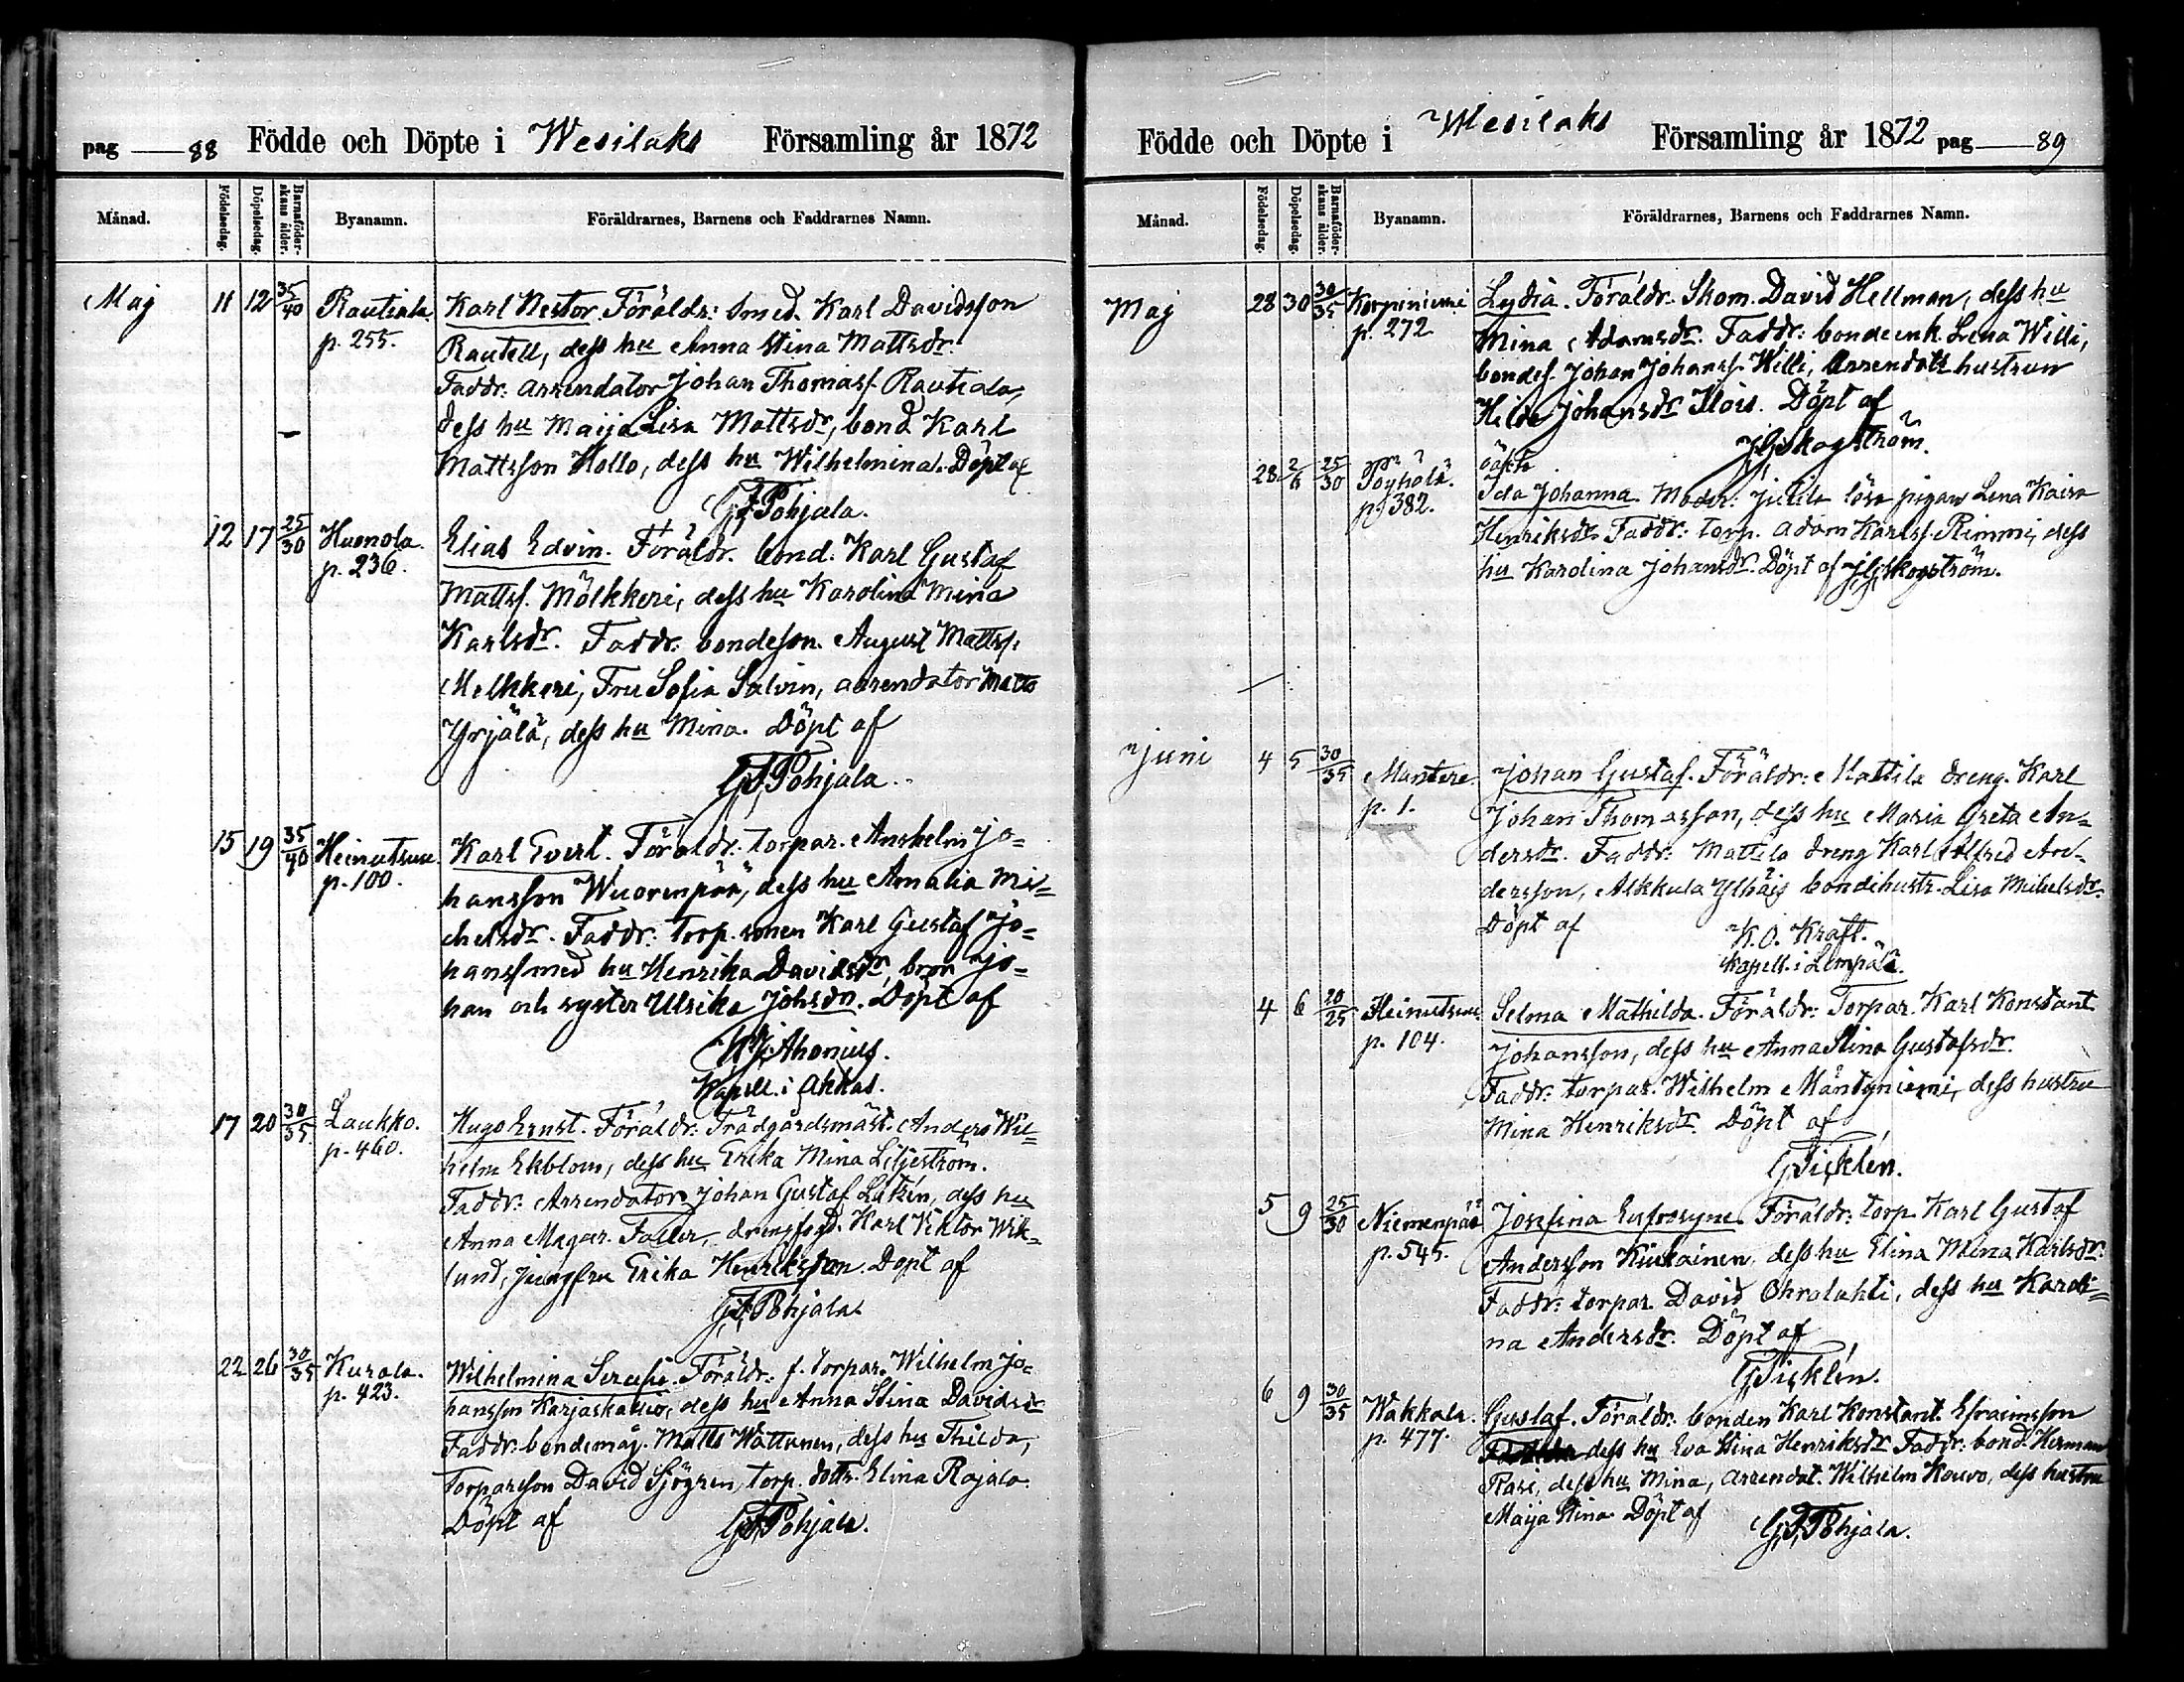 pag 88 Födde och Döpte i Wesilaks Församling år 1872
Månad. Födelsedag. Döpelsedag. Barnaföderskans ålder. Byanamn. Föräldrarnes, Barnens och Faddrarnes Namn.
Maj 11 12 35/40 Rautiala. Karl Nestor. Föräldr: Smed. Karl Davidsson
p. 255. Rautell, dess hu Anna Stina Mattsdr.
Faddr: arrendator Johan Thomass. Rautiala,
dess hu Maija Lisa Mattsdr, bond Karl
Mattsson Hollo, dess hu Wilhelmina. Döpt af
G.F. Pohjala.
12 17 25/30 Huonola. Elias Edvin. Föräldr. bond. Karl Gustaf
p. 236. Mattss. Mölkkeri, dess hu Karolina Mina
Karlsdr. Faddr: bondeson. August Mattss.
Melkkeri, Fru Sofia Salvin, arrendator Matts
Yrjälä, dess hu Mina. Döpt af
G.F. Pohjala.
15 19 35/40 Heinutsuu. Karl Evert. Föräldr: torpar. Anshelm Jo=
p. 100. hansson Wuorenpää, dess hu Amalia Mi=
chelsdr. Faddr: torp. sonen Karl Gustaf Jo=
hanss med hu Henrika Davidsdr, bror Jo=
han och syster Ulrika Johsdr. Döpt af
Ahonius.
Kapell. i Akkas.
17 20 30/35 Laukko. Hugo Ernst. Föräldr: Trädgårdsmäst. Anders Wil=
p. 460. helm Ekblom, dess hu Erika Mina Liljeström.
Faddr: Arrendator Johan Gustaf, dess hu
Anna Magar. Faller, drengfogd. Karl Viktor Wik=
lund, jungfru Erika Henriksson. Döpt af
G.F. Pohjala.
22 26 30/35 Kurala. Wilhelmina Serafia. Föräldr: f. torpar. Wilhelm Jo=
p. 423. hansson, dess hu Anna Stina Davidsdr
Faddr: bondemåg. Matts Wattunen, dess hu Thilda,
torparson David Sjögren, torp. dottr. Elina Rajala.
Döpt af G.F. Pohjala.
Födde och Döpte i Wesilaks Församling år 1872 pag 89
Månad. Födelsedag. Döpelsedag. Barnaföderskans ålder. Byanamn. Föräldrarnes, Barnens och Faddrarnes Namn.
Maj 28 30 30/35 Korpiniemi Lydia. Föräldr. Skom. David Hellman, dess hu
p. 272. Mina Adamsdr. Faddr: bondeenk. Lena Willi,
bondes. Johan Johanss. Willi, Arrendat. hustrun
Hilda Johansdr Ilois. Döpt af
Skogström.
28 2/6 25/30 Pöyhölä. oäkta
p. 382. Ida Johanna. Modr: Jutila lösa pigan Lena Kaisa
Henriksdr. Faddr: torp. Adam Karlss. Rimmi, dess
hu Karolina Johansdr. Döpt af Skogström.
Juni 4 5 30/35 Mantere. Johan Gustaf. Föräldr: Mattila dreng. Karl
p. 1. Johan Thomasson, dess hu Maria Greta An=
dersdr. Faddr: Mattila dreng Karl Alfred An=
dersson, Alkkula Ylhäis bondehustr. Lisa Michelsdr.
Döpt af K.O. Kraft.
Kapell. i Lempälä.
4 6 20/25 Heinutsuu. Selma Mathilda. Föräldr: Torpar. Karl Konstant
p. 104. Johansson, dess hu Anna Stina Gustafsdr.
Faddr: torpar. Wilhelm Mäntyniemi, dess hustru
Mina Henriksdr. Döpt af
G. Ticklén.
5 9 25/30 Niemenpää Josefina Eufrosyne. Föräldr: torp. Karl Gustaf
p. 545. Andersson Kiukainen, dess hu Elina Mina Karlsdr.
Faddr: torpar. David Ohralahti, dess hu Karoli=
na Andersdr. Döpt af
G. Ticklén.
6 9 30/35 Wakkala. Gustaf. Föräldr: bonden Karl Konstant. Efraimsson
p. 477. dess hu Eva Stina Henriksdr. Faddr: bond. Herman
Rasi, dess hu Mina, arrendat. Wilhelm Kouvo, dess hustru
Maija Stina. Döpt af G.F. Pohjala.